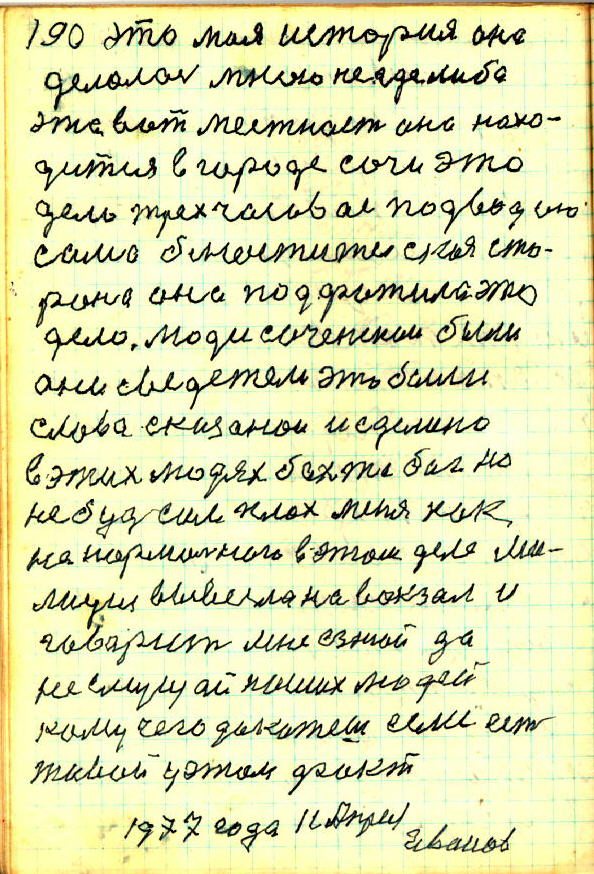 190 это моя история она
делолас много не где либо
эта вот местност она нахо-
дится в городе сочи это
дело трех часов ое подводною
само
рона она подфотила это
дело. люди соченскои были
они сведетели это были
слова сказанои и сделано
в этих людях бахжи бог но
не буд сил плох меня как
на нормолного в этом деле ми-
лиция вывела на вокзал и
говарит мне езжой да
не смущай ноших людей
кому чего докожеш если ест
твоой у этом факт
1977 года 11 Апрел
Иванов